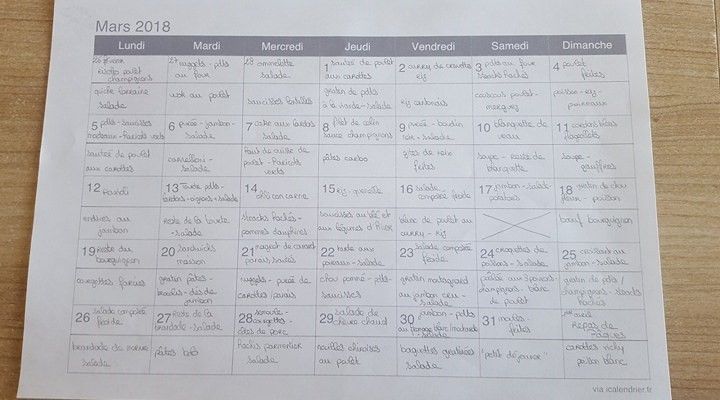 Mars 2018
Lundi Mardi Mercredi Jeudi Vendredi Samedi Dimanche
26 février 27 nuggets - pdts 28 ommelette 1 sauté de poulet 2 curry de crevette 3 pdts au four 4 poulet
risotto poulet au four salade aux carottes riz steacks hachés frites
champignons
quiche lorraine wok au poulet saucisses lentilles gratin de pdts riz cantonais couscous poulet - poisson - riz -
salade à la viande - salade merguez poireaux
5 pdts - saucisses 6 purée - jambon - 7 cake aux lardons 8 filet de colin 9 purée - boudin 10 blanquette de 11
haricots verts salade salade sauce champignons salade veau flageolets
sauté de poulet cannelloni - haricots pâtes carbo frites soupe - reste de soupe -
aux carottes salade verts blanquette gauffres
12 13 Tourte pdts - 14 chili con carne 15 riz - quenelle 16 salade 17 jambon - salade 18 gratin de chou
lardons - oignons - salade composée froide fleur - poisson
endives au Reste de la tourte steacks hachés - saucisses au blé et blanc de poulet au boeuf bourguignon
jambon - salade pommes dauphines aux légumes d'hiver curry - riz
19 Reste du 20 sandwichs 21 magret de canard 22 tarte aux 23 salade composée 24 croquettes de 25 croissant au
bourguignon maison poireaux - salade froide poisson - salade jambon - salade
courgettes farcies gratin pâtes nuggets - purée de chou pommé - pdts - gratin gratin de pdts /
dés de carottes panais saucisses au jambon cru - champignons - blanc champignons - steacks
jambon salade de poulet hachés
26 salade composée 27 Reste de la 28 semoule - 29 salade de 30 jambon - pdts - 31 moules - 1er avril
froide brandade - salade courgettes - chèvre chaud au fromage blanc frites Repas de
côtes de porc salade Pâques
brandade de morue pâtes bolo hachis parmentier nouilles chinoises baguettes gratinées "petit déjeuner" carottes vichy
salade salade au poulet salade poisson blanc
via icalendrier.fr